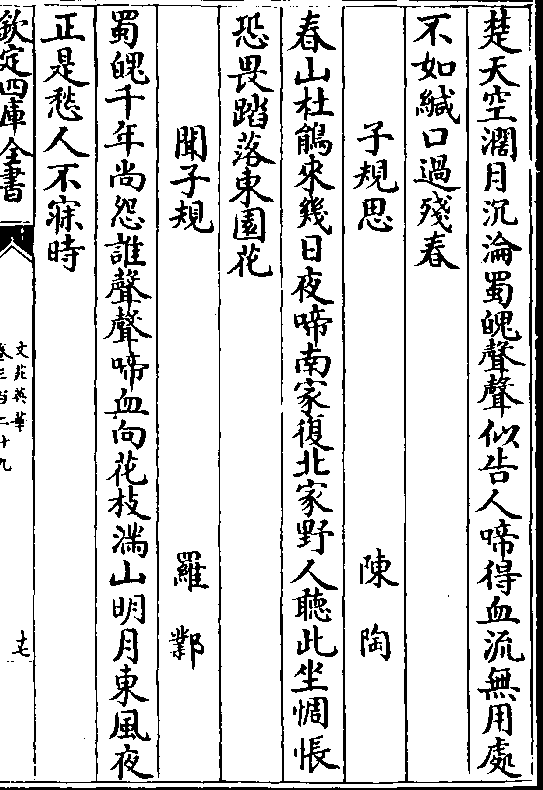 楚天空濶月沉淪蜀魄聲聲似告人啼得血流無用處
不如緘口過殘春
子規思 陳陶
春山杜鵑來幾日夜啼南家復北家野人聽此坐惆悵
恐畏踏落東園花
聞子規 羅鄴
蜀魄千年尚怨誰聲聲啼血向花枝滿山明月東風夜
正是愁人不寐時
欽定四庫全書
文苑英華
卷三百二十九